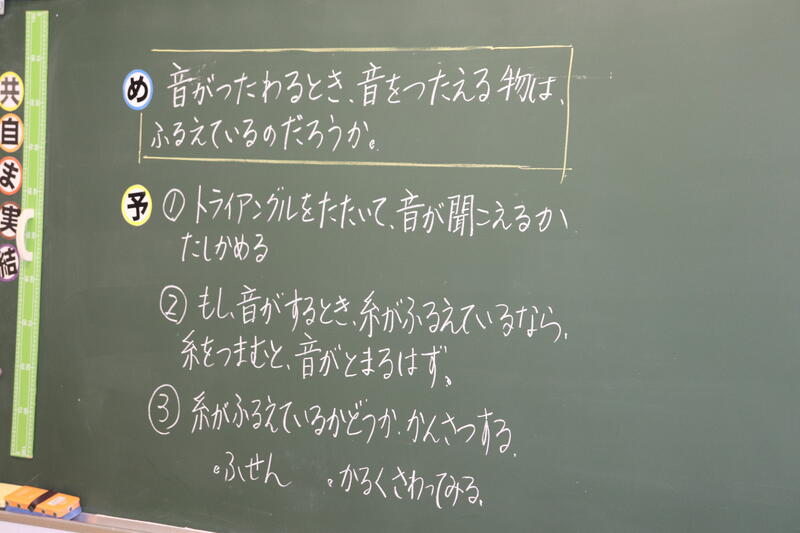 め 音がつたわるとき、音をつたえる物は、
ふるえているのだろうか。
予 ① トライアングルをたたいて、音が聞こえるか
たしかめる
② もし、音がするとき、糸がふるえているなら、
糸をつまむと、音がとまるはず。
③ 糸がふるえているかどうか、かんさつする。
・ふせん ・かるくさわってみる。
共
自
ま
実
結